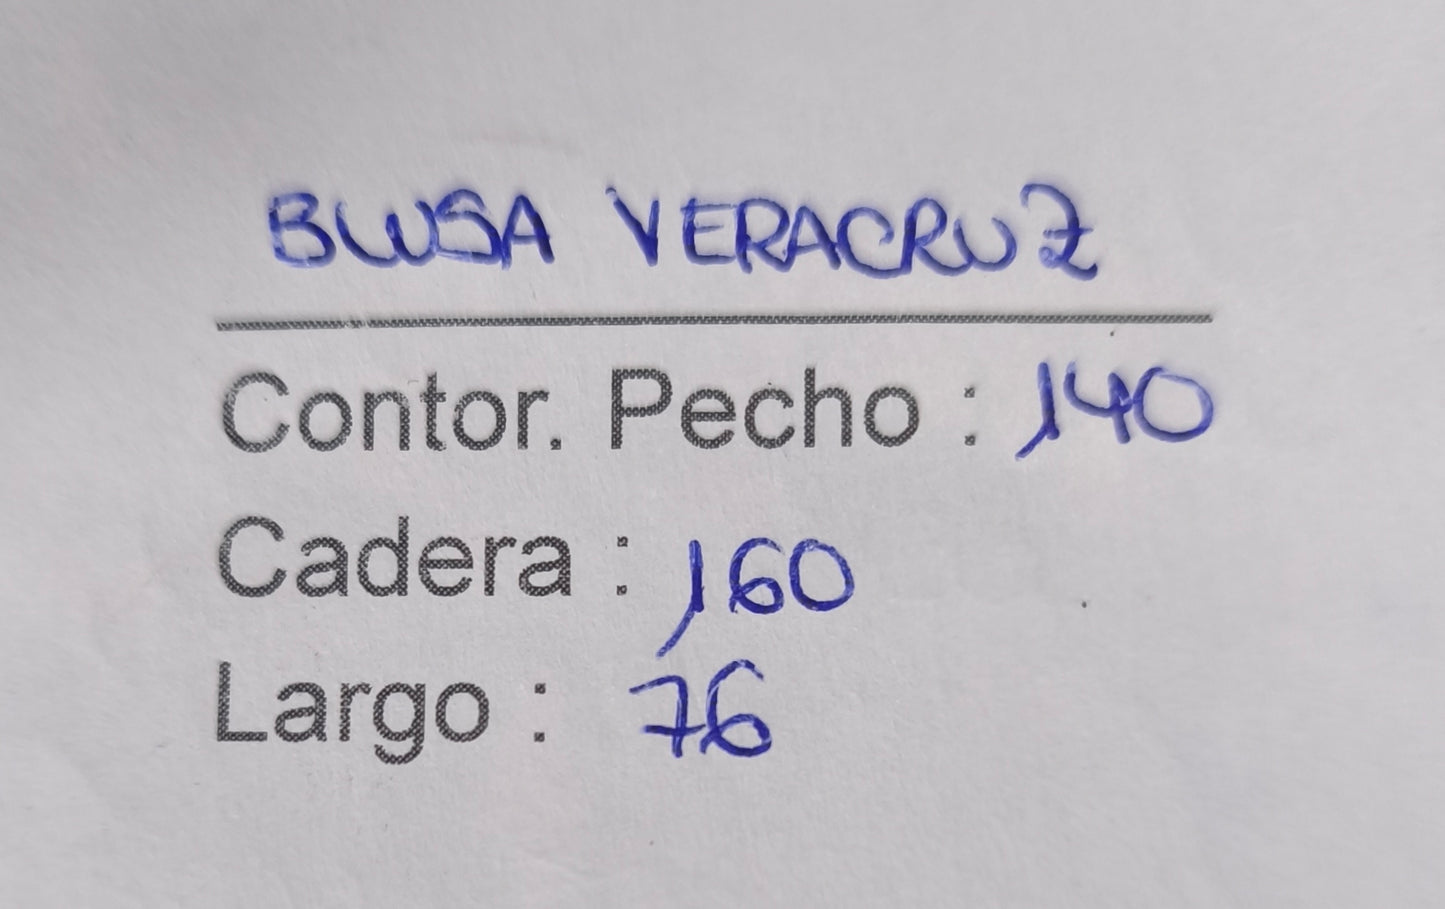 BLUSA VERACRUZ
Contor. Pecho : 140
Cadera : 160
Largo : 76